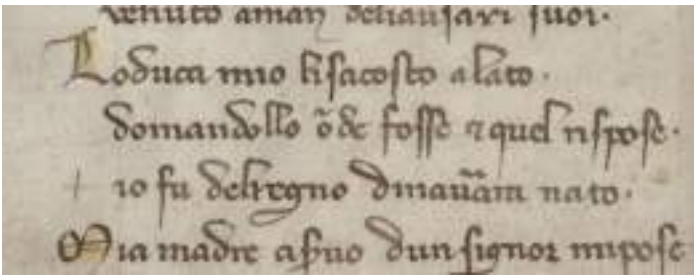 venuto aman deli auſarı ſuoı·
Loduca mıo lıſacoſto alato·
domandollo õde foſſe ⁊ quel rıſpoſe·
ıo fu delregno dınauãra nato·
Mıa madre aſuo dun ſıgnor mıpoſe